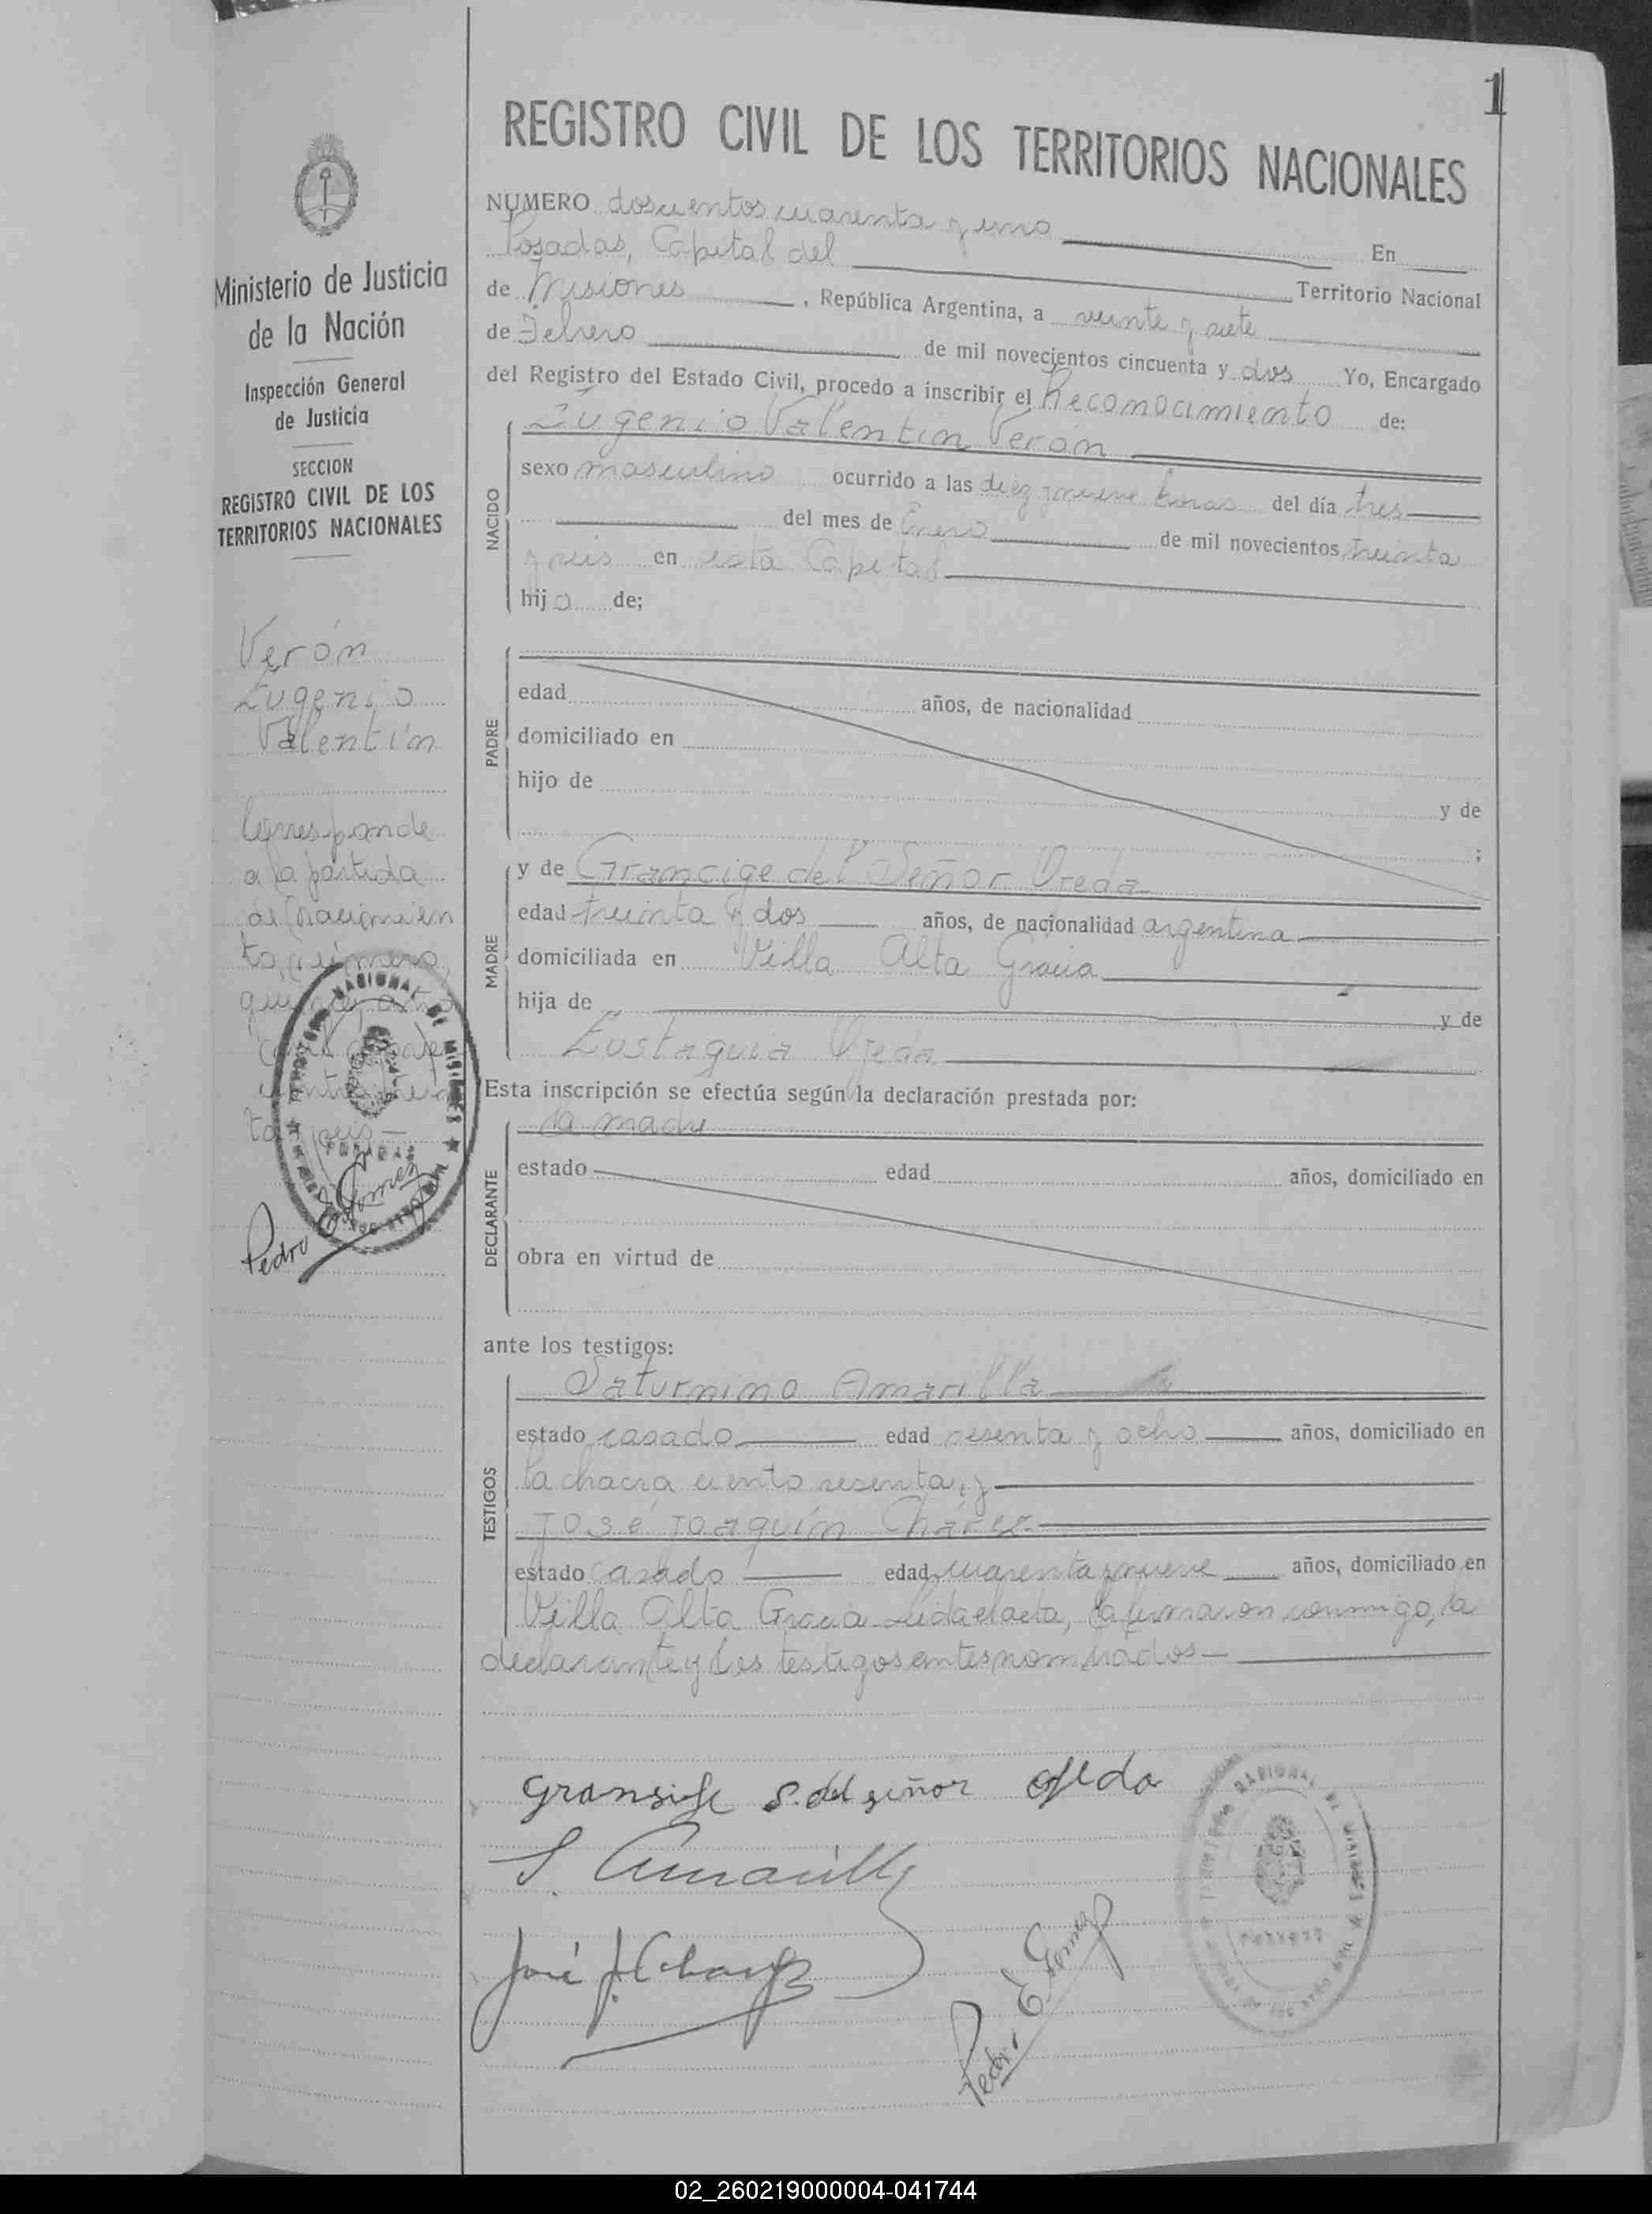 1
REGISTRO CIVIL DE LOS TERRITORIOS NACIONALES
NUMERO doscientos cuarenta y uno En
Posadas, Capital del Territorio Nacional
de Misiones, República Argentina, a veinte y siete
de Febrero de mil novecientos cincuenta y dos Yo, Encargado
del Registro del Estado Civil, procedo a inscribir el Reconocimiento de:
Eugenio Valentín Verón
NACIDO
sexo masculino ocurrido a las diez y nueve horas del día tres
del mes de Enero de mil novecientos treinta
y seis en esta Capital
hijo de;
PADRE
edad años, de nacionalidad
domiciliado en
hijo de
y de
;
MADRE
y de Grancige del Señor Ojeda
edad treinta y dos años, de nacionalidad argentina
domiciliada en Villa Alta Gracia
hija de y de
Eustaquia Ojeda
Esta inscripción se efectúa según la declaración prestada por:
la madre
DECLARANTE
estado edad años, domiciliado en
obra en virtud de
ante los testigos:
Saturnino Amarilla
TESTIGOS
estado casado edad sesenta y ocho años, domiciliado en
la chacra ciento sesenta, y
José Joaquín Chávez
estado casado edad cuarenta y nueve años, domiciliado en
Villa Alta Gracia Leida el acta, la firmaron conmigo, la
declarante y los testigos antes nombrados
Gransige S. del señor ojeda
S. Amarilla
José J. Chavez
Pedro E. Gomez
Ministerio de Justicia
de la Nación
Inspección General
de Justicia
SECCION
REGISTRO CIVIL DE LOS
TERRITORIOS NACIONALES
Verón
Eugenio
Valentín
Corresponde
a la partida
de nacimien
to, número
Pedro E. Gomez
02_260219000004-041744